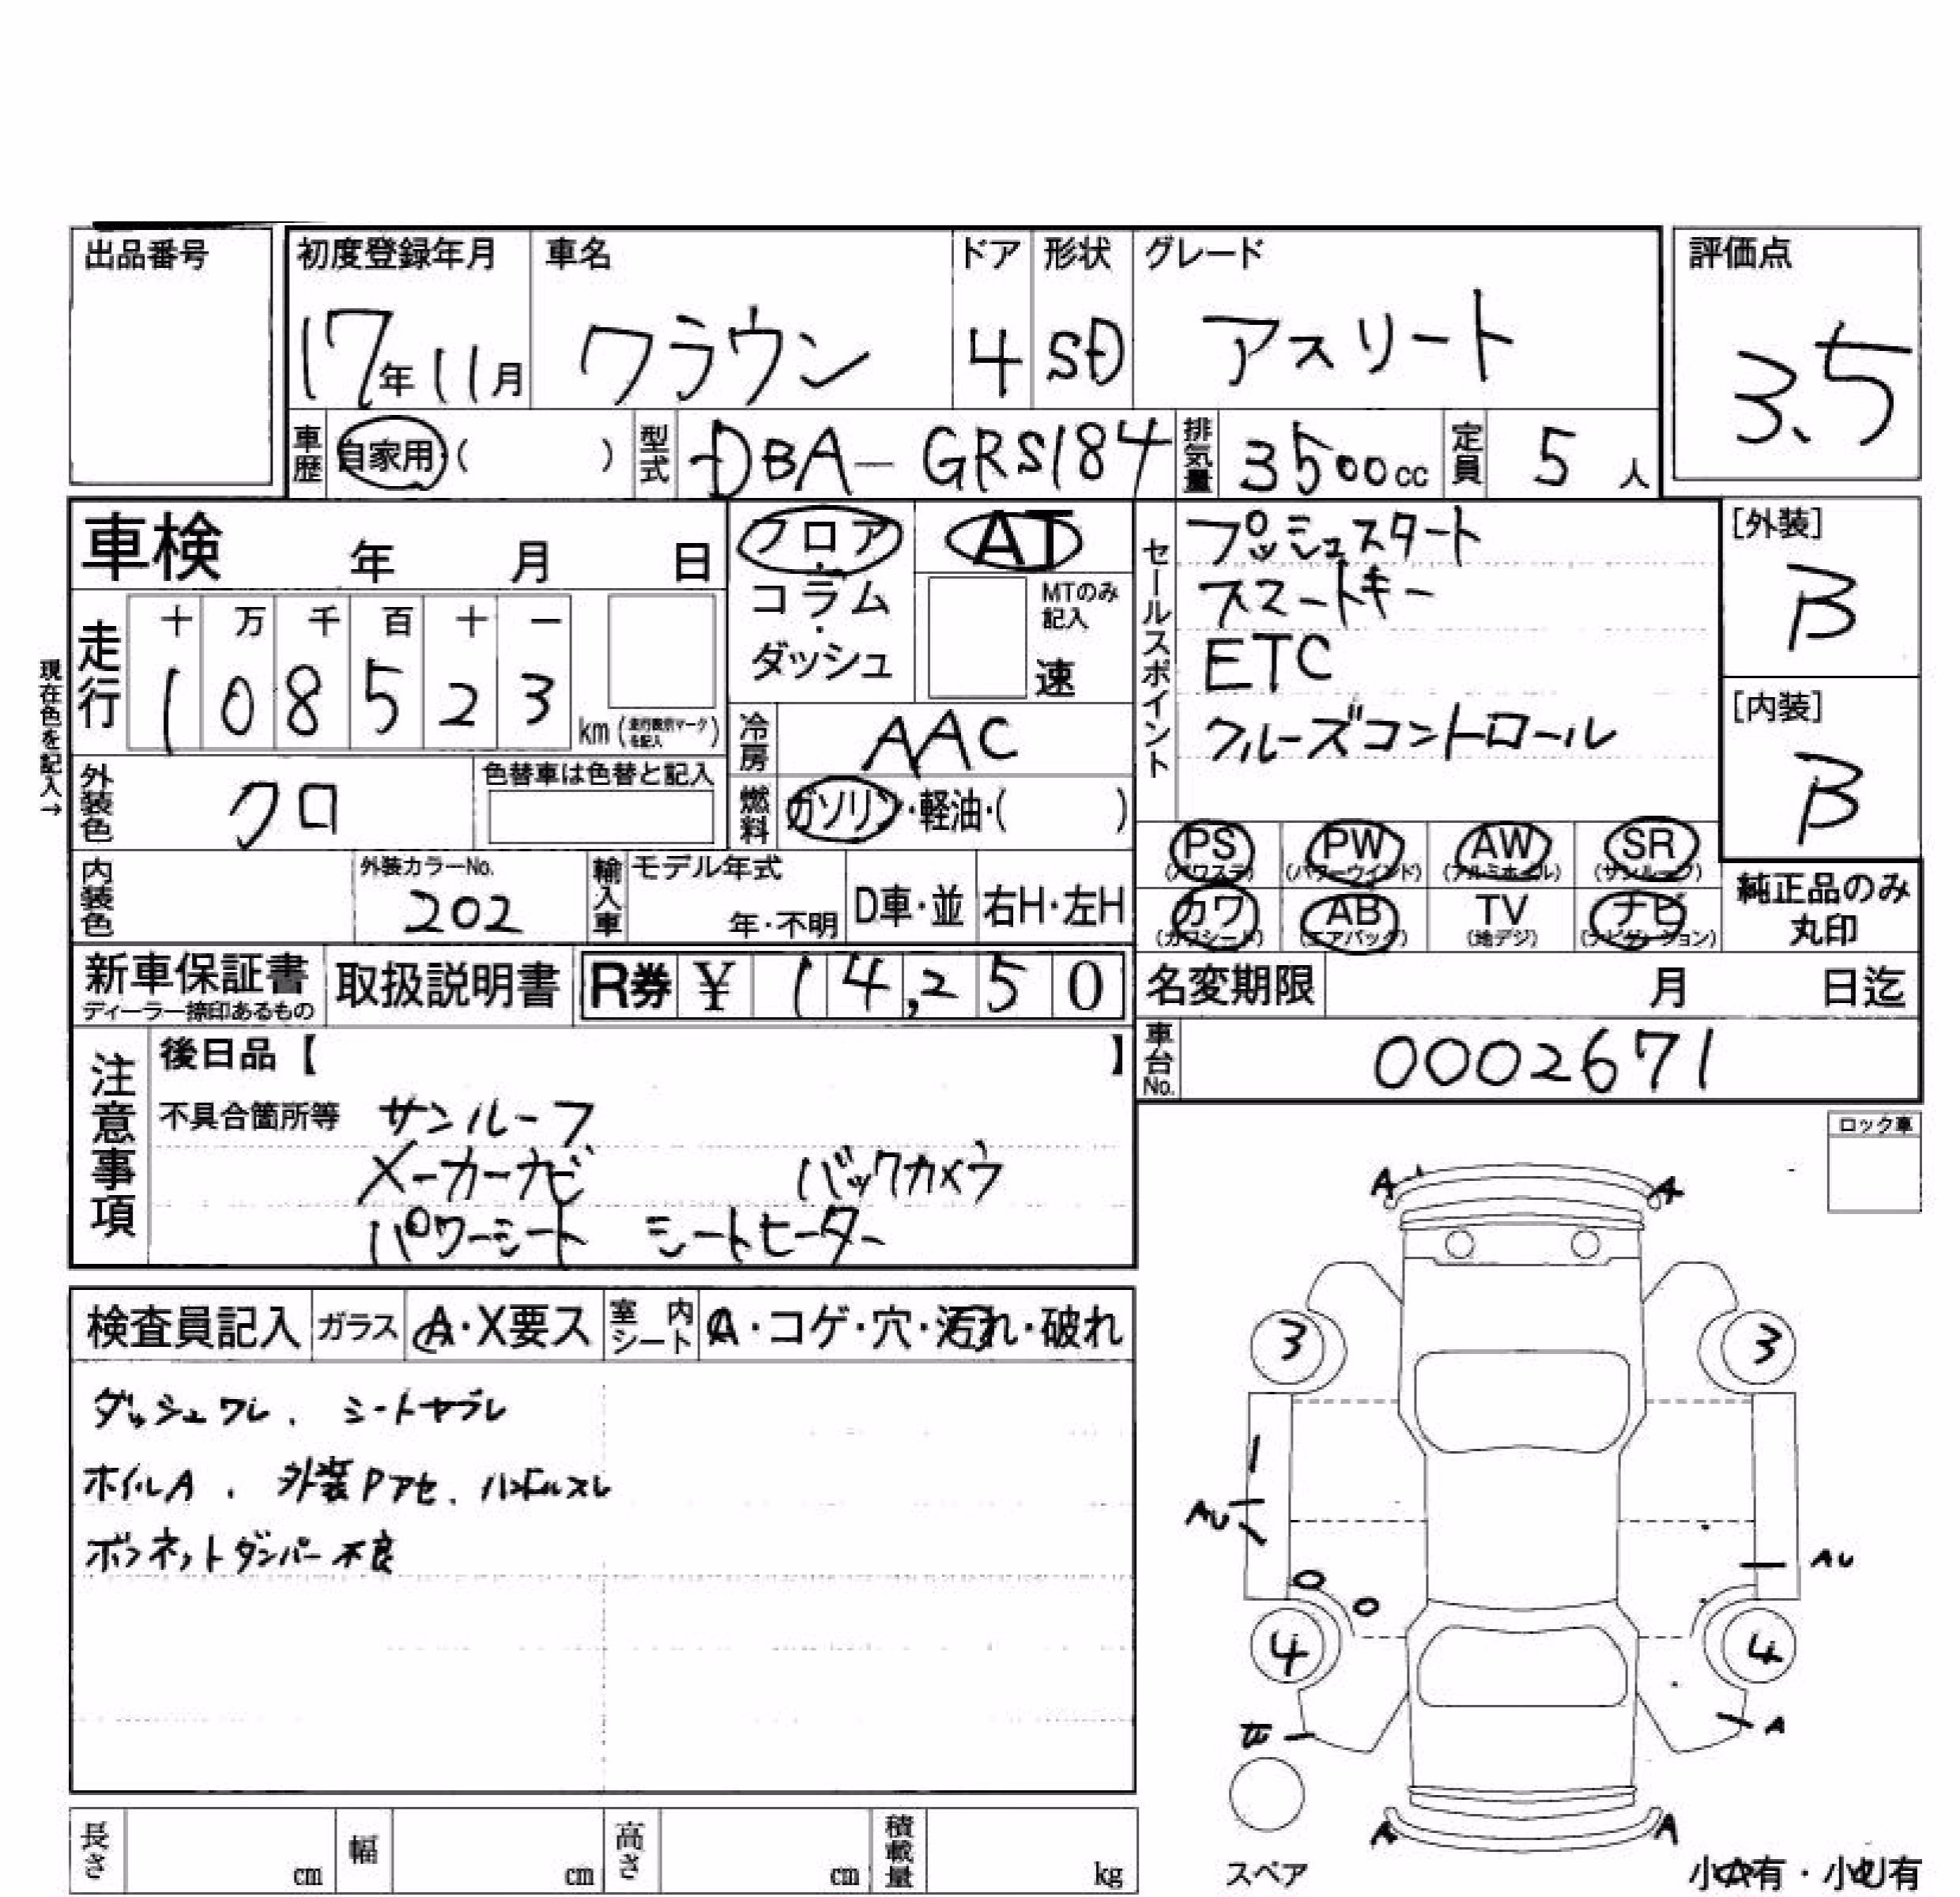 出品番号
初度登録年月 車名 ドア 形状 グレード 評価点
17年11月 クラウン 4 SD アスリート 3.5
車歴 自家用( ) 型式 DBA-GRS184 排気量 3500cc 定員 5人
車検 年 月 日
フロア・コラム・ダッシュ
AT
MTのみ記入
速
現在色を記入→
走行 十 万 千 百 十 一
1 0 8 5 2 3 km (走行表示マークを記入)
冷房 AAC
外装色 クロ 色替車は色替と記入
燃料 ガソリン・軽油・( )
セールスポイント
プッシュスタート
スマートキー
ETC
クルーズコントロール
[外装]
B
[内装]
B
PS (パワステ) PW (パワーウインド) AW (アルミホイル) SR (サンルーフ)
カワ (カワシート) AB (エアバッグ) TV (地デジ) ナビ (ナビゲーション)
純正品のみ
丸印
内装色 外装カラーNo. 202 輸入車 モデル年式 年・不明 D車・並 右H・左H
新車保証書 ディーラー捺印あるもの 取扱説明書 R券 ¥ 14,250
名変期限 月 日迄
車台No. 0002671
注意事項
後日品【 】
不具合箇所等 サンルーフ
メーカーナビ バックカメラ
パワーシート シートヒーター
ロック車
検査員記入 ガラス A・X要ス 室内シート A・コゲ・穴・汚れ・破れ
ダッシュワレ、シートヤブレ
ホイルA、外装Pアセ、ハンドルスレ
ボンネットダンパー不良
A A
3 3
AU AU
4 4
A
A A
スペア
小A有・小U有
長さ cm 幅 cm 高さ cm 積載量 kg